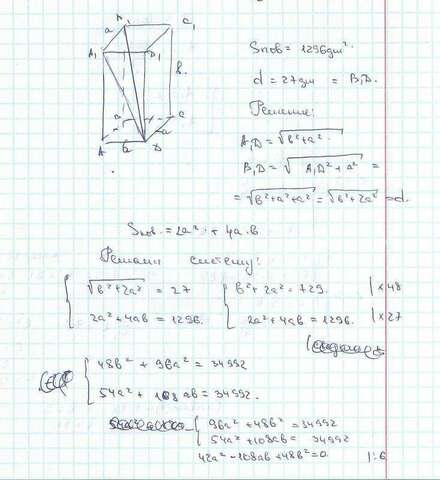 A₁ a B₁ C₁
A₁ D₁
b.
B C
A a D a
Sпов = 1296дм².
d = 27дм = B₁D.
Решение:
A₁D = √b²+a².
B₁D = √A₁D²+a² =
= √b²+a²+a² = √b²+2a² = d.
Sпов. = 2a² + 4a·b.
Решаем систему:
√b²+2a² = 27 b²+2a² = 729. | ×48
2a²+4ab = 1296. 2a²+4ab = 1296. | ×27
48b² + 96a² = 34992
54a² + 108ab = 34992.
96a²+48b² = 34992
54a²+108ab = 34992
42a²-108ab+48b²=0. | :6